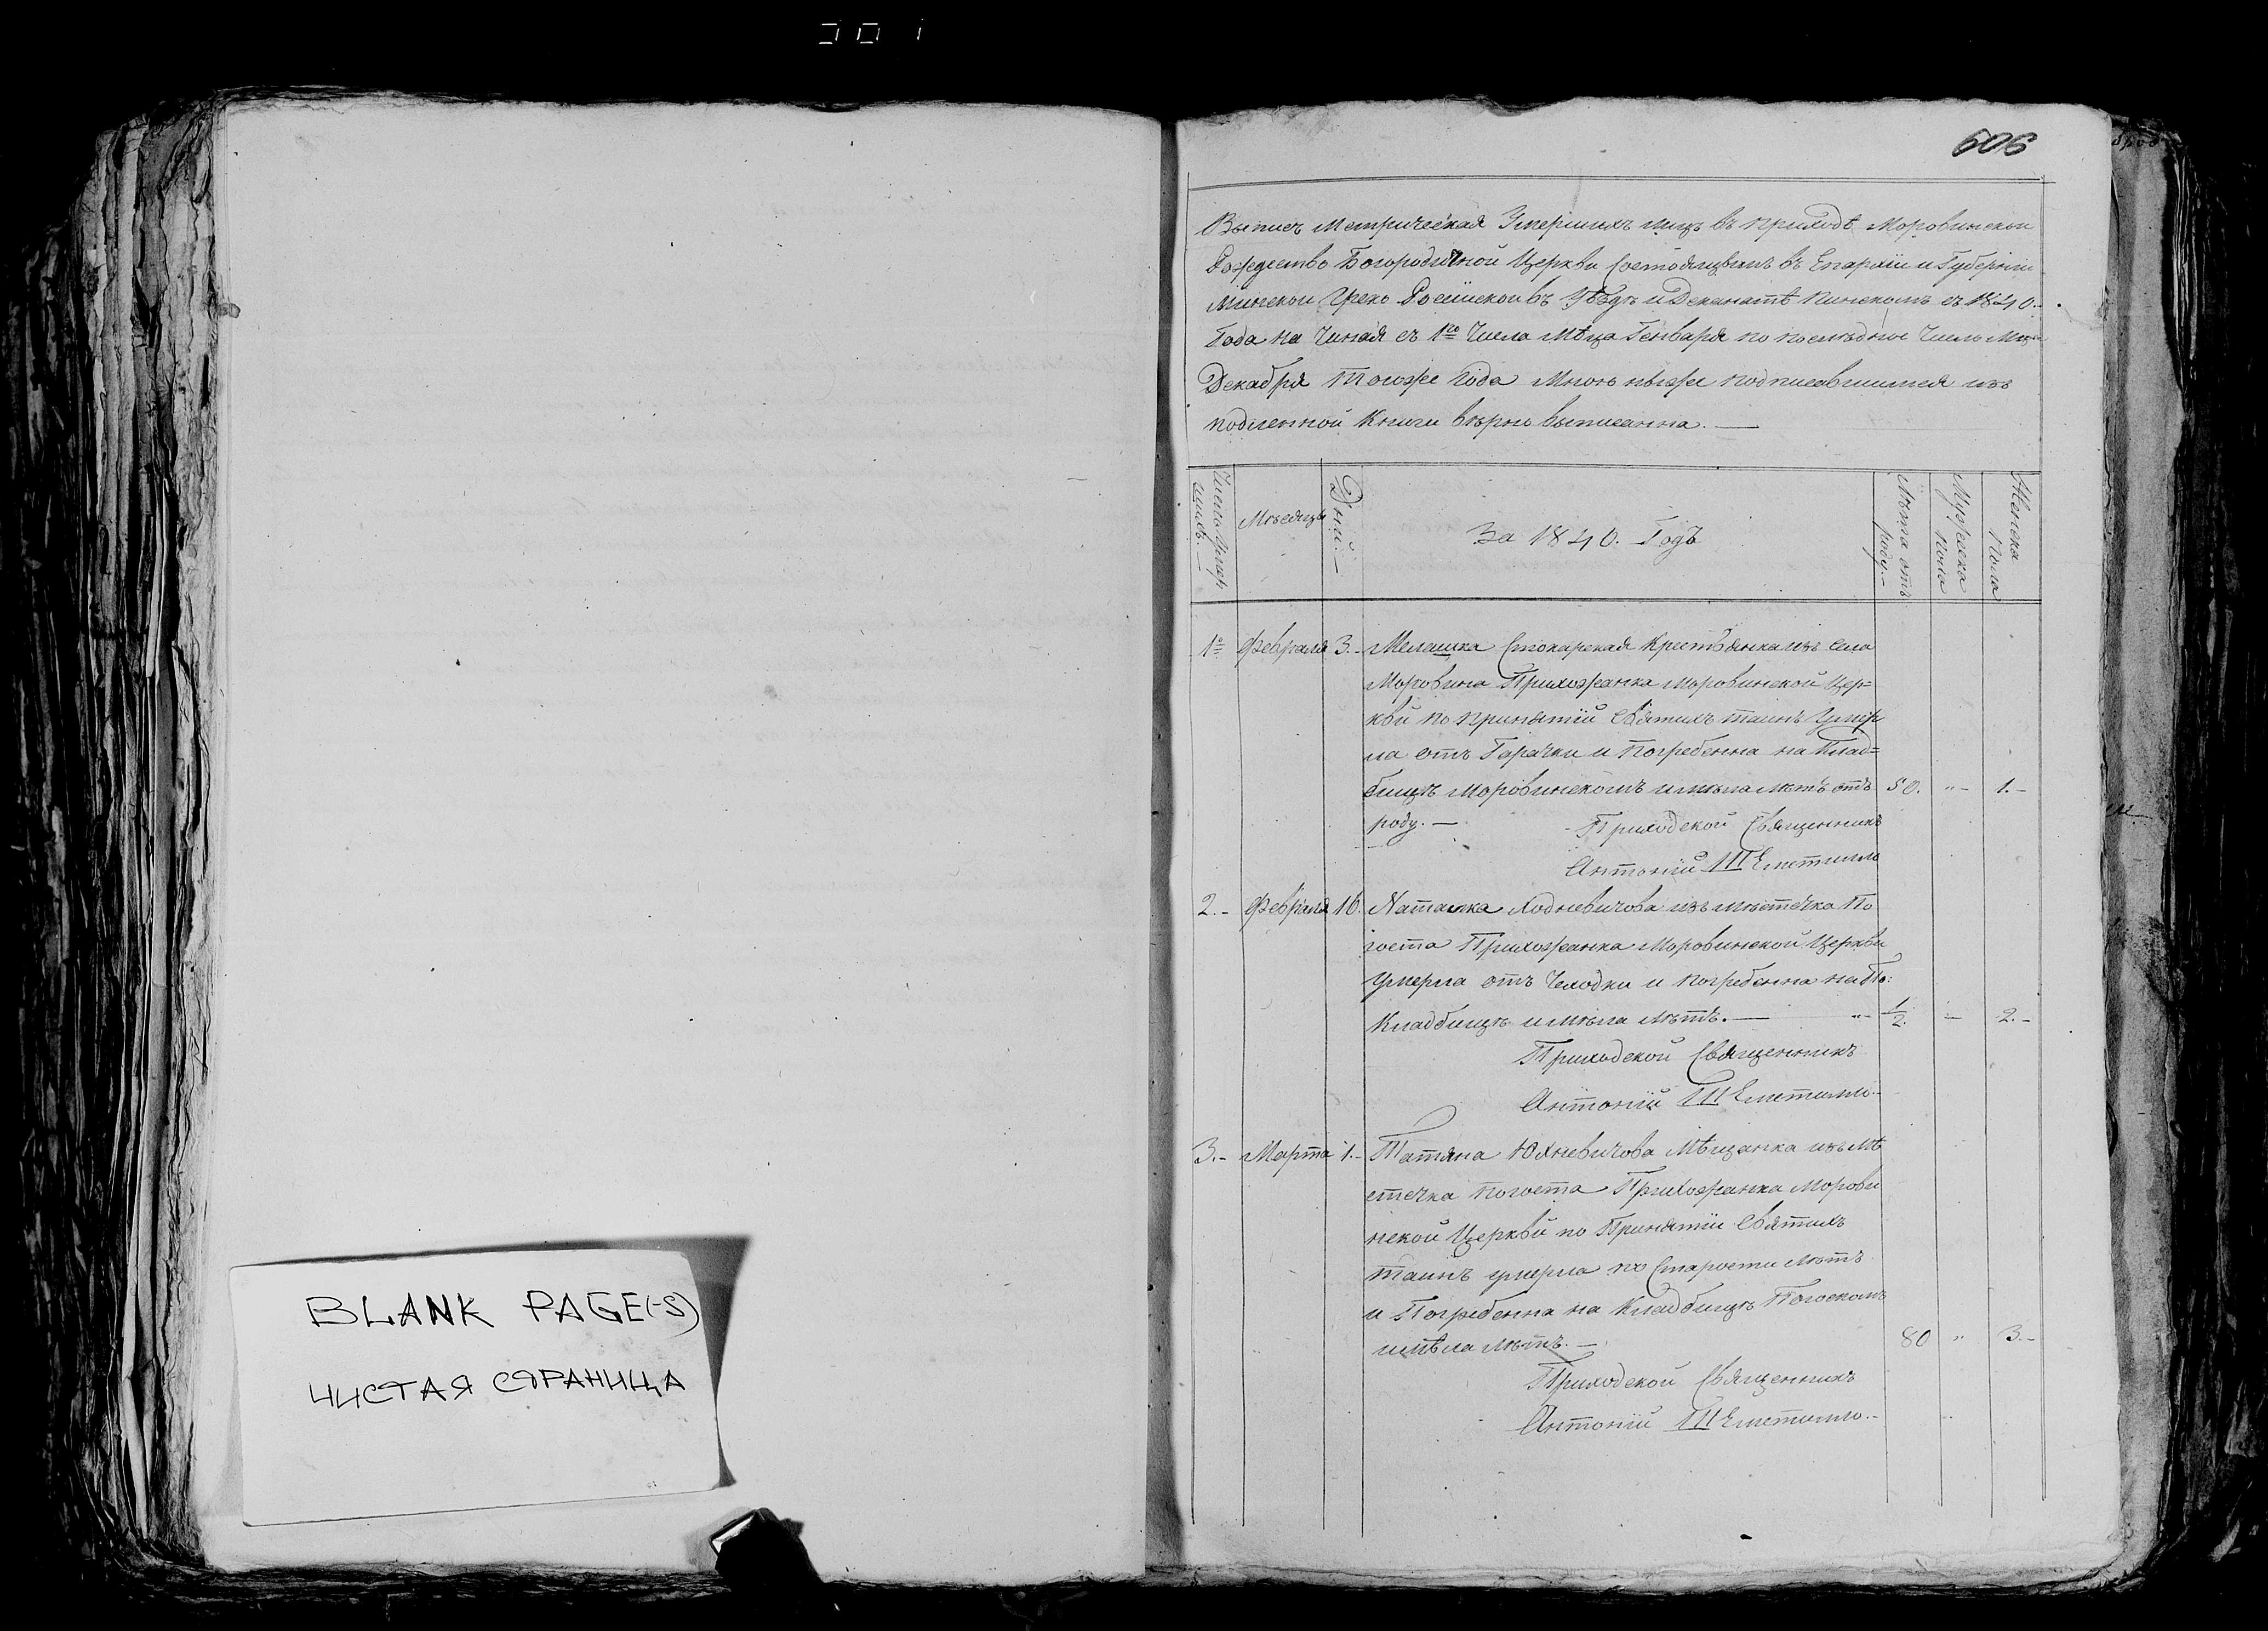 606
Выпись Метрическая Умершихъ лицъ въ приходѣ Моровинской
Рождество Богородичной Церкви Состоящымъ въ Епархіи и Губерніи
Минской Греко Россійской въ Уѣздѣ и Деканатѣ Пинскомъ съ 1840.
Года на Чиная съ 1го Числа Мѣца Генваря по последное Число Мца
Декабря Тогоже Года Мною ныже подписавшимся изъ
подленной Книги вѣрно выписанна. —
Число Умер
шихъ. —
Мѣсяцы
Дни. —
За 1840. Годъ
Лѣта отъ
роду. —
Мужеска
Пола
Женска
Пола
1е Февраля 3. Мелашка Стокарская Крестьянка изъ Села
Моровина Прихожанка Моровинской Цер=
кви по принятіи Святихъ таинъ Умер
ла отъ Горячки и Погребенна на Клад=
бищѣ Моровинскомъ имѣла лѣтъ отъ 50. „ — 1. —
роду. — Приходской Священникъ
Антоній
2. — Февраля 16. Наталка Ходневичова изъ мѣстечка По
госта Прихожанка Моровинской Церкви
Умерла отъ и погребенна на По:
Кладбищѣ имѣла лѣтъ. — „ 1/2. — 2. —
Приходской Священникъ
Антоній
3. — Марта 1. — Татяна Юхневичова Мѣщанка изъ Мѣ
стечка Погоста Прихожанка Морови
нской Церкви по Принятіи Святихъ
Таинъ умерла по Старости Лѣтъ
и Погребенна на Кладбищѣ Погоскомъ
имѣла лѣтъ. — 80 „ 3. —
Приходской Священникъ
Антоній
BLANK PAGE(-S)
ЧИСТАЯ СТРАНИЦА